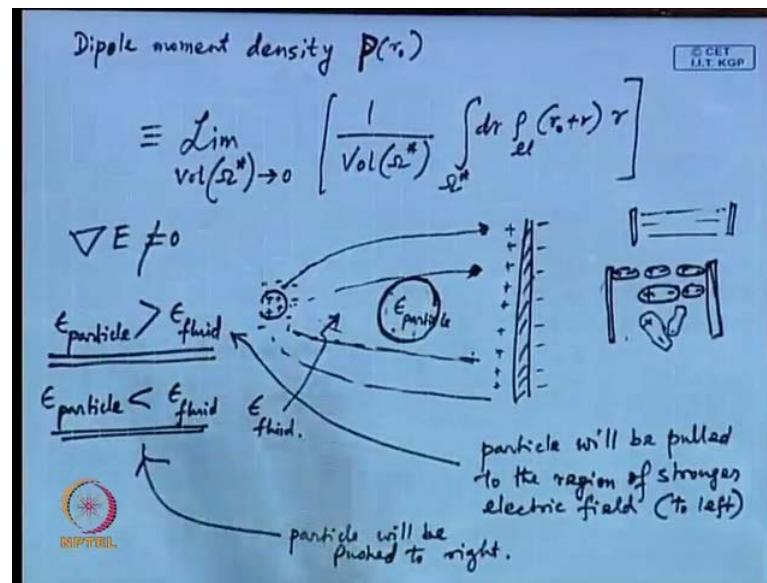 Dipole moment density P(r₀)
© CET
I.I.T. KGP
≡ Lim Vol(Ω*)→0 [ 1/Vol(Ω*) ∫Ω* dr ρel (r₀+r) r ]
∇E ≠ 0
+ + + +
+ + + + + + + +
- - - - - - - -
ϵparticle > ϵfluid
ϵparticle
ϵparticle < ϵfluid
ϵfluid.
particle will be pulled
to the region of stronger
electric field (to left)
particle will be
pushed to right.
NPTEL